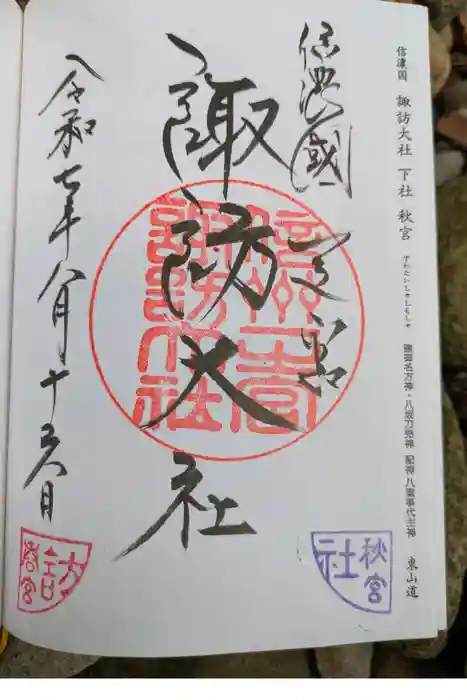 信濃国 諏訪大社 下社 秋宮 すわたいしゃしもしゃ 建御名方神・八坂刀売神 配神 八重事代主神 東山道
信濃國 一之宮
諏訪大社
令和七年八月十六日
信州一宮
諏訪大社
秋宮
社